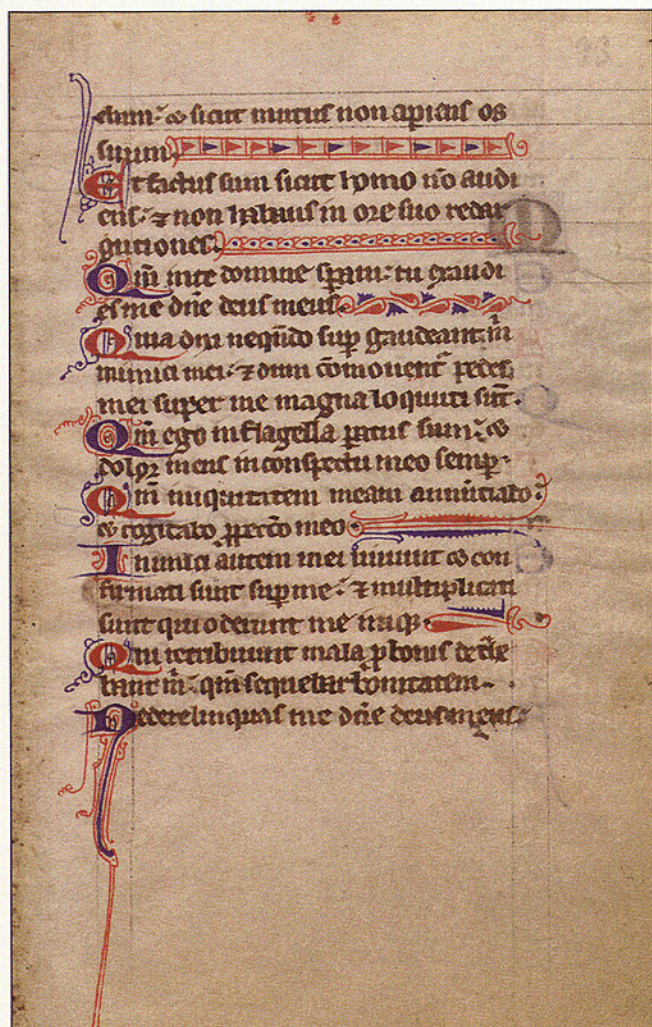 ebam: & sicut mutus non apiens os
suum.
Et factus sum sicut homo nō audi
ens: ⁊ non habens in ore suo redar
gutiones.
Qm̄ in te domine sp̄aui: tu exaudi
es me dn̄e deus meus.
Quia dixi neqn̄do sup gaudeant m̄
inimici mei: ⁊ dum cōmouent᷑ pedes
mei super me magna loquuti sūt.
Qm̄ ego in flagella patus sum: &
dolor meus in conspectu meo semp.
Qm̄ iniquitatem meam annūtiabo:
& cogitabo p peccō meo.
Inimici autem mei uiuunt & con
firmati sunt sup me: ⁊ multiplicati
sunt qui oderunt me iniq.
Qui retribuunt mala p bonis det̄he
bant m̄: qm̄ sequebar bonitatem.
Nederelinquas me dn̄e deus meus: